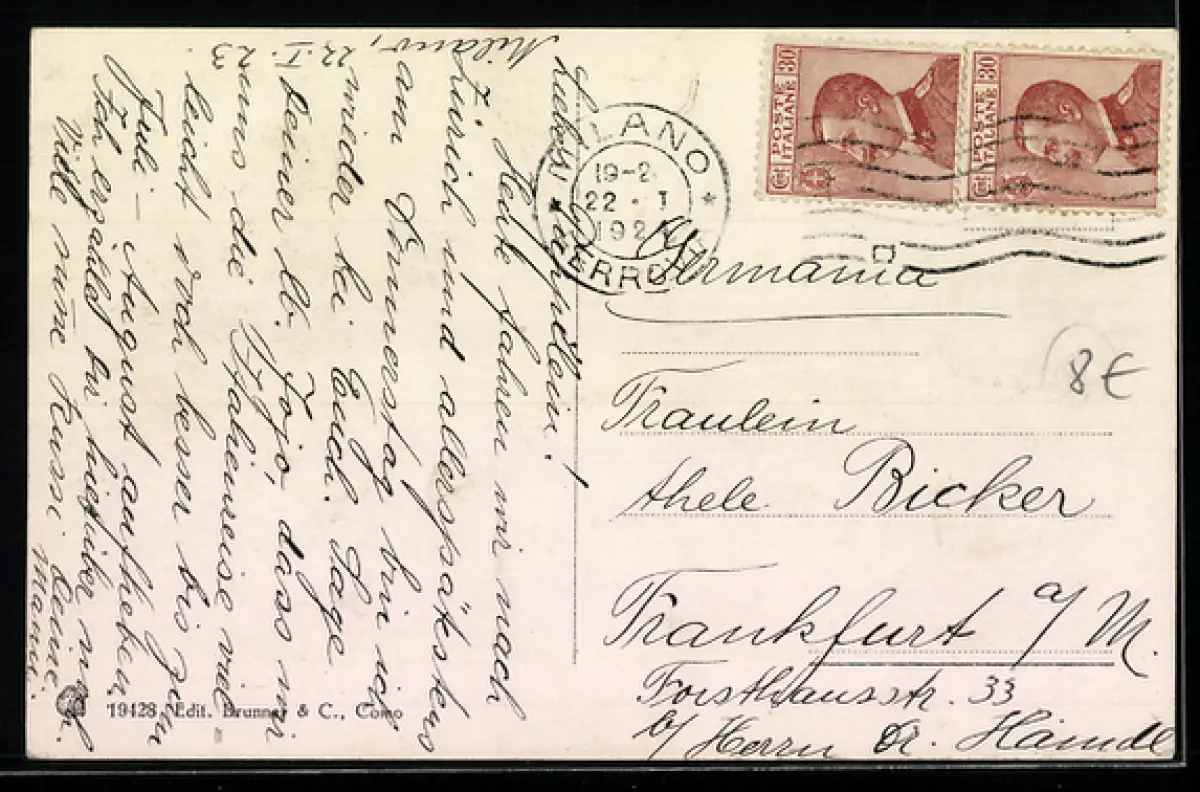 Milano,
22.I.23
Liebes Puttlein!
Heute fahren wir nach
Zürich und allerspätestens
am Donnerstag bin ich
wieder bei Euch. Sage
Deiner lb. Jojo, dass wir
uns die Italienreise viel-
leicht doch besser bis zum
Juli - August aufheben.
Ich erzähle dir hierüber
Viele süsse Kussi. Deine
Mammi.
MILANO
19-2
22 · I
192
FERROVIA
POSTE ITALIANE
Cent 30
POSTE ITALIANE
Cent 30
Germania
8 €
Fräulein
Thele Bicker
Frankfurt a/M.
Forsthausstr. 33
b/ Herrn Dr. Haindl
19428 Edit. Brunner & C., Como